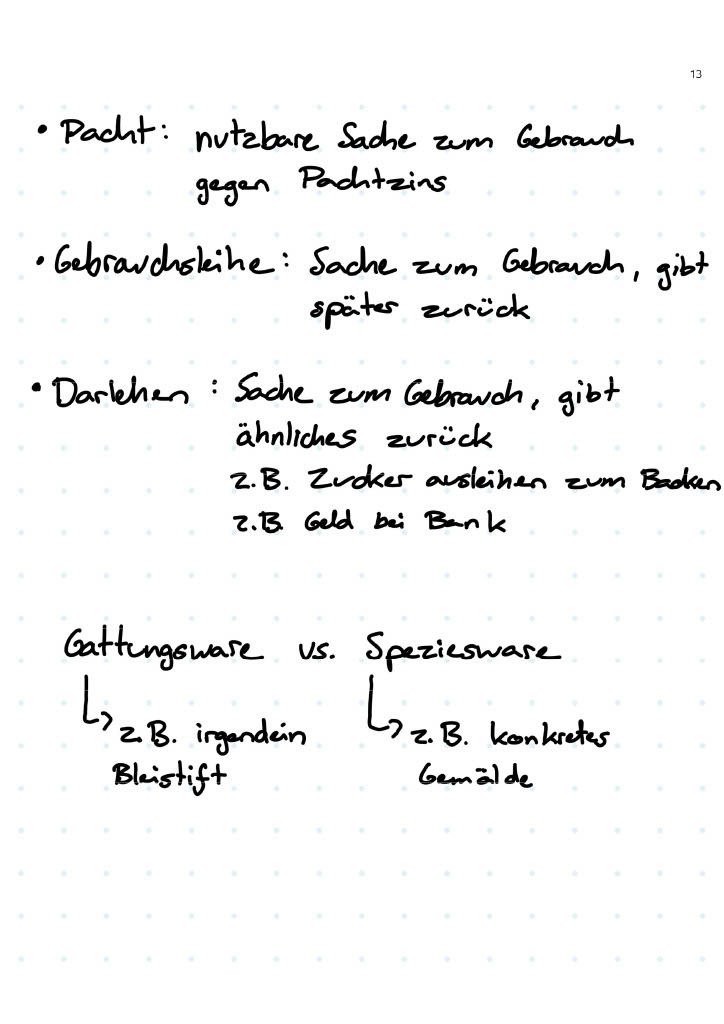 13
• Pacht: nutzbare Sache zum Gebrauch
gegen Pachtzins
• Gebrauchsleihe: Sache zum Gebrauch, gibt
später zurück
• Darlehen: Sache zum Gebrauch, gibt
ähnliches zurück
z.B. Zucker ausleihen zum Backen
z.B. Geld bei Bank
Gattungsware vs. Speziesware
↳ z.B. irgendein
Bleistift
↳ z.B. konkretes
Gemälde